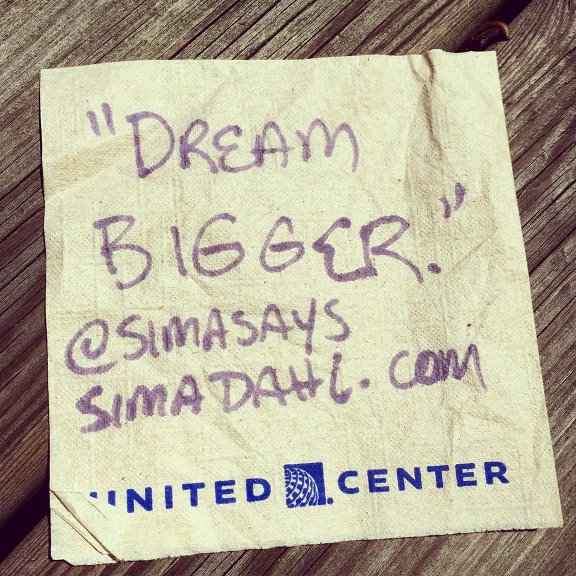 "DREAM
BIGGER."
@SIMASAYS
SIMADAHL.COM
UNITED CENTER